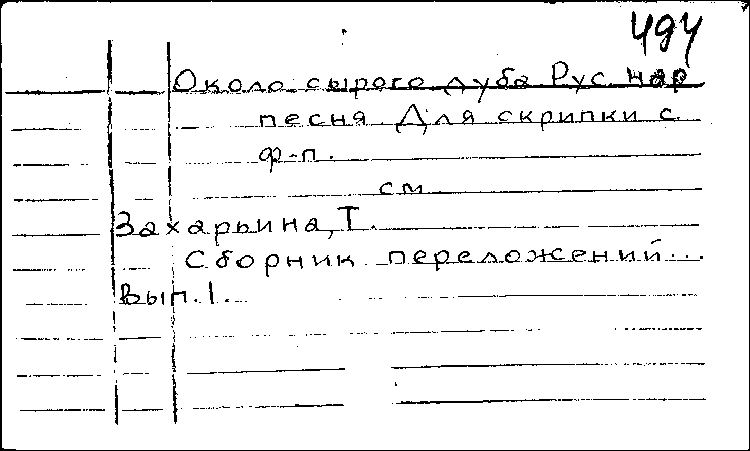 494
Около сырого дуба Рус. нар
песня. Для скрипки с
ф-п.
см
Захарьина, Т.
Сборник переложений...
Вып. 1.